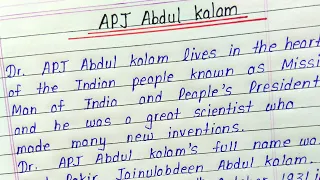 APJ Abdul Kalam
Dr. APJ Abdul Kalam lives in the heart
of the Indian people known as Missi
Man of India and People's President
and he was a great scientist who
made many new inventions.
Dr. APJ Abdul kalam's full name wa
Pakir Jainulabdeen Abdul Kalam.
October 1931 in